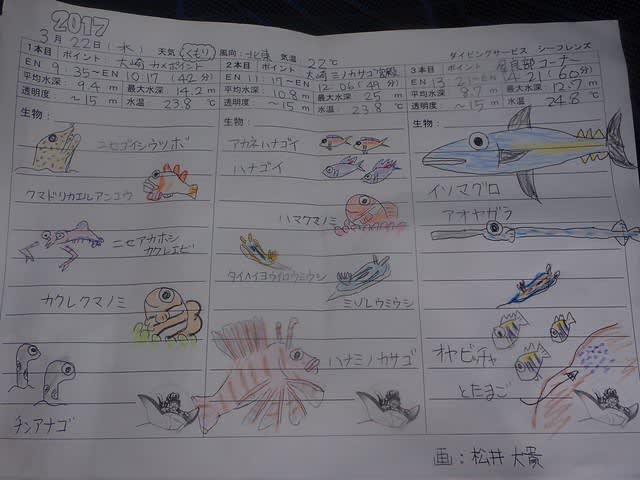 2017
3月22日(水) 天気 くもり 風向:北東 気温 22℃
ダイビングサービス シーフレンズ
1本目 ポイント 大崎 カメポイント
EN 9:35～EN 10:17 (42分)
平均水深: 9.4 m 最大水深 14.2 m
透明度 ～15 m 水温 23.8 ℃
生物:
ニセゴイシウツボ
クマドリカエルアンコウ
ニセアカホシ
カクレエビ
カクレクマノミ
チンアナゴ
2本目 ポイント 大崎ミノカサゴ宮殿
EN 11:17～EN 12:06 (49分)
平均水深: 10.8 m 最大水深 25 m
透明度 ～15 m 水温 23.8 ℃
生物:
アカネハナゴイ
ハナゴイ
ハマクマノミ
タイヘイヨウイロウミウシ
ミゾレウミウシ
ハナミノカサゴ
3本目 ポイント 屋良部コーナー
EN 13:21～EN 14:21 (60分)
平均水深: 8.7 m 最大水深 12.7 m
透明度 ～15 m 水温 24.8 ℃
生物:
イソマグロ
アオヤガラ
オヤビッチャ
とたまご
画:松井 大貴